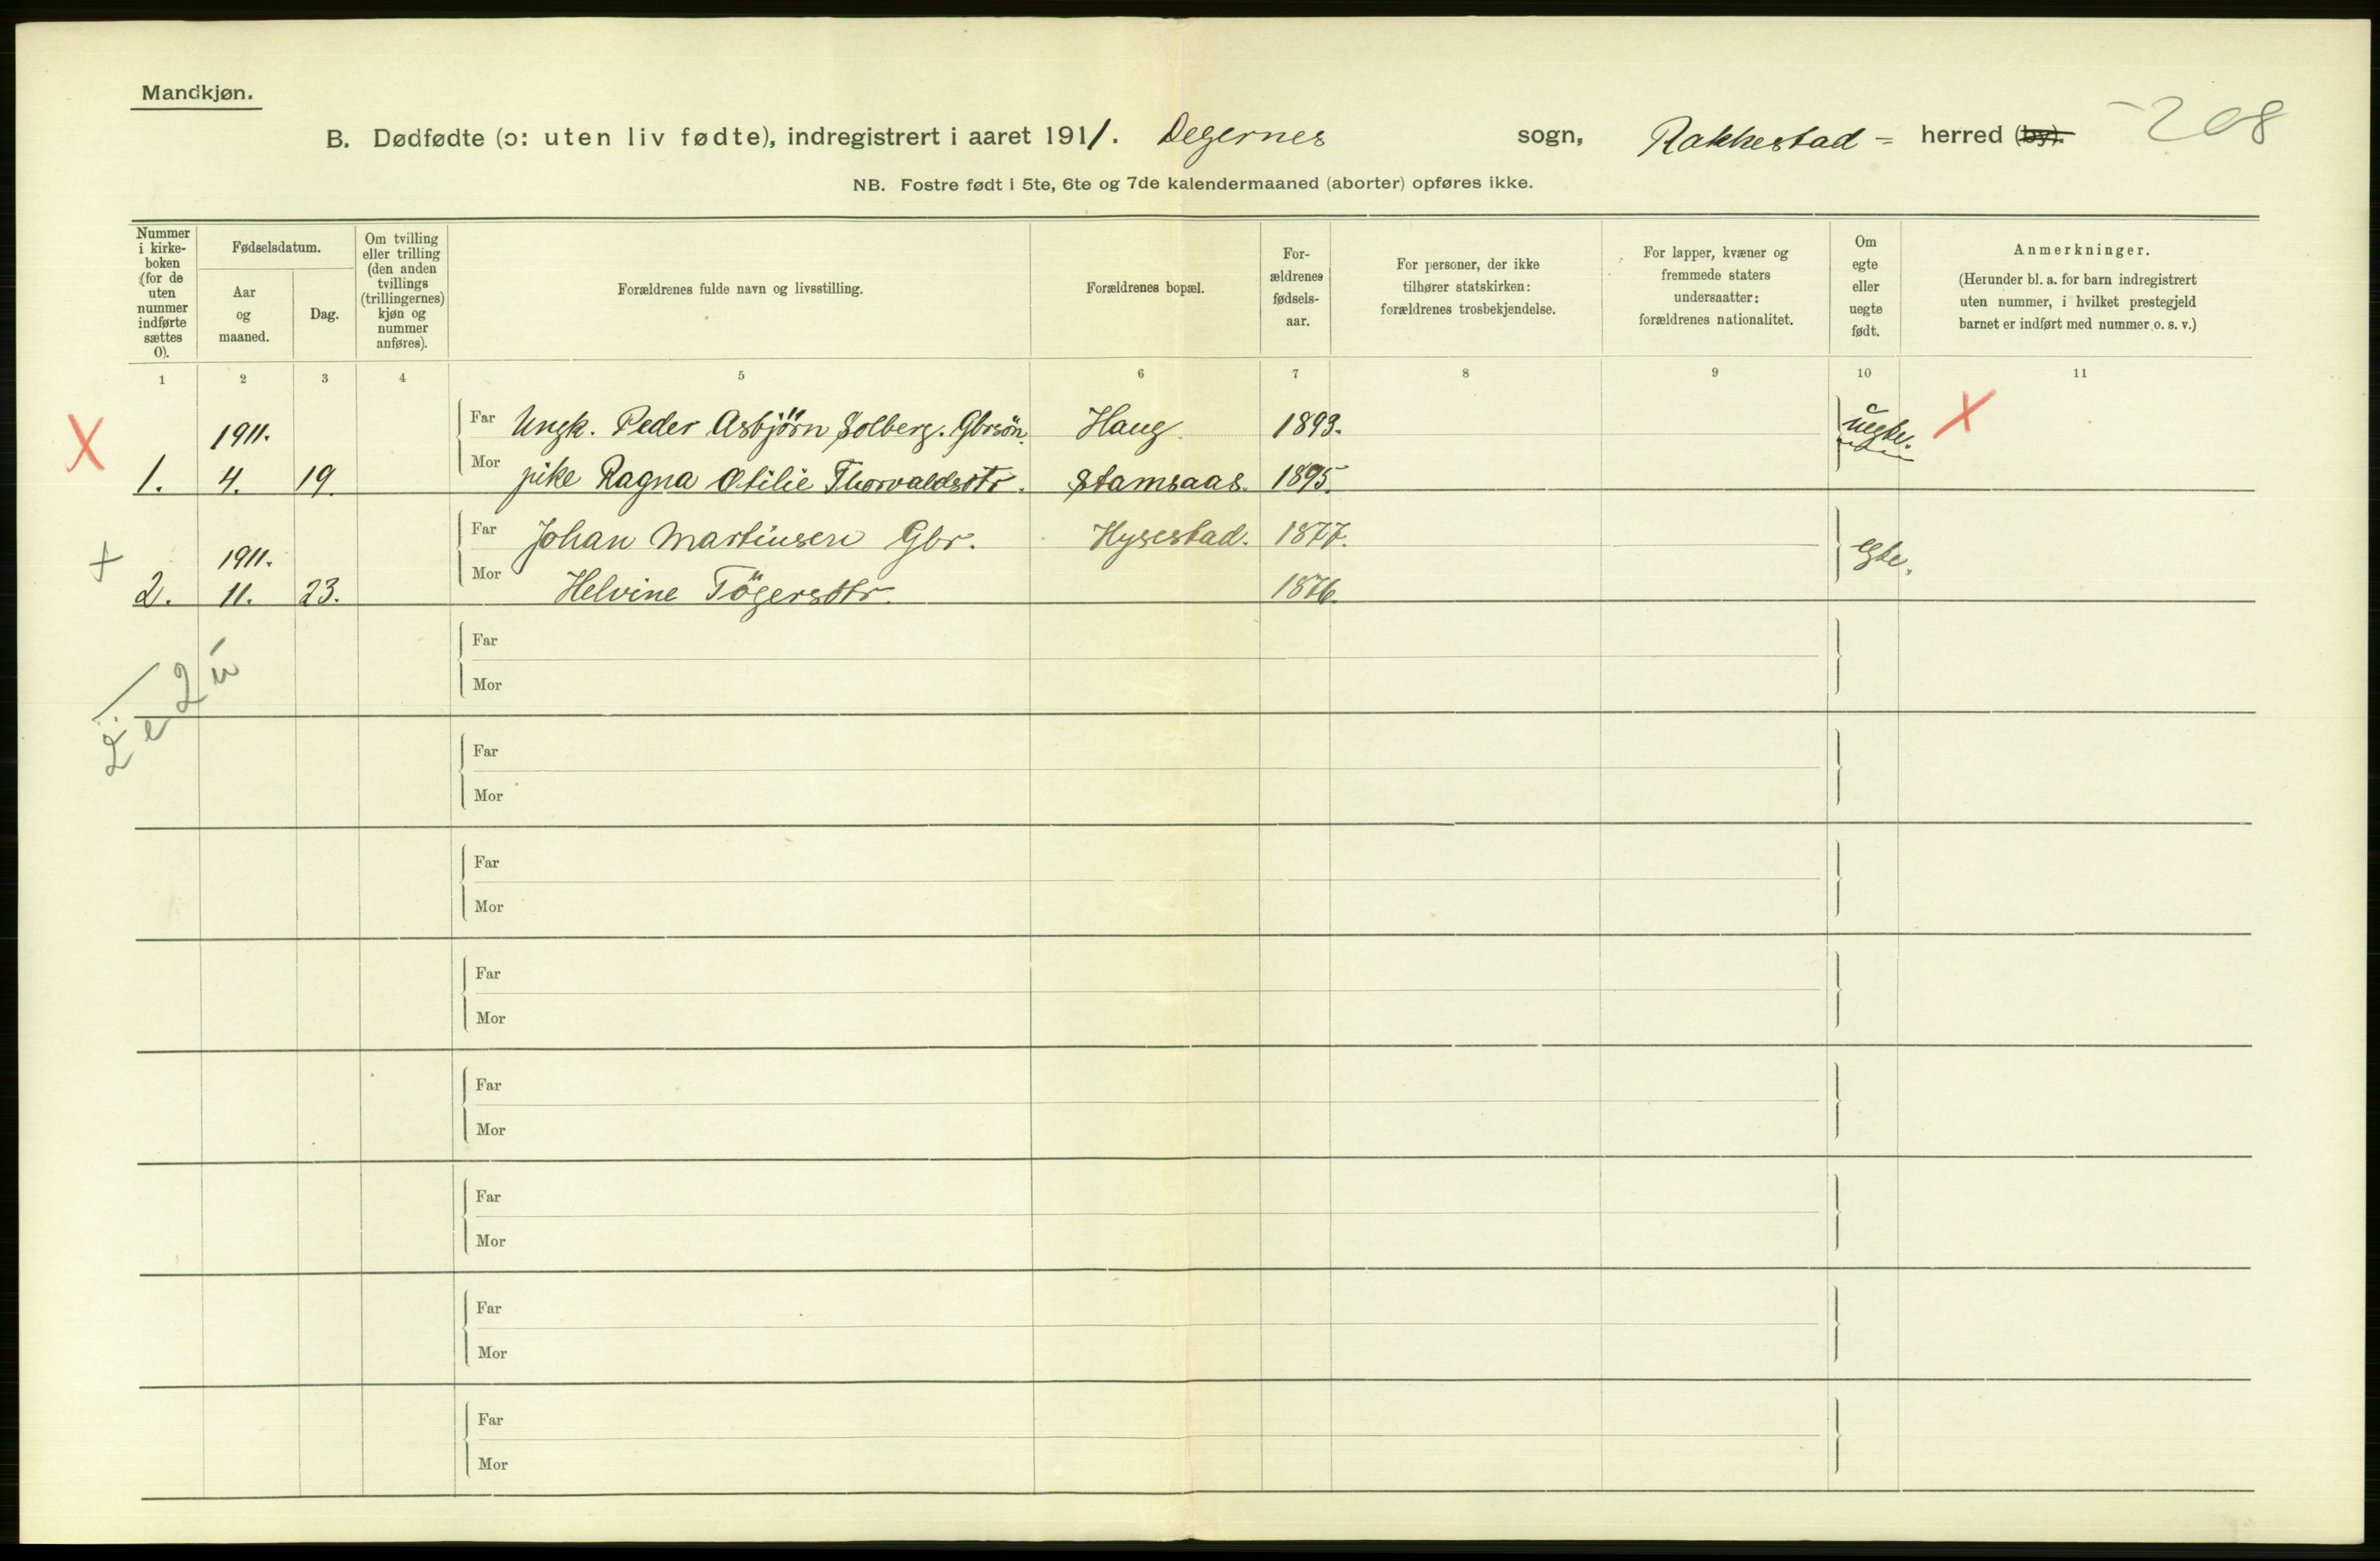 Mandkjøn.
B. Dødfødte (ɔ: uten liv fødte), indregistrert i aaret 1911. Degernes sogn, Rakkestad - herred (by).
208
NB. Fostre født i 5te, 6te og 7de kalendermaaned (aborter) opføres ikke.
Nummer i kirke-boken (for de uten nummer indførte sættes 0).
Fødselsdatum.
Aar og maaned.
Dag.
Om tvilling eller trilling (den anden tvillings (trillingernes) kjøn og nummer anføres).
Forældrenes fulde navn og livsstilling.
Forældrenes bopæl.
For-ældrenes fødsels-aar.
For personer, der ikke tilhører statskirken: forældrenes trosbekjendelse.
For lapper, kvæner og fremmede staters undersaatter: forældrenes nationalitet.
Om egte eller uegte født.
Anmerkninger.
(Herunder bl. a. for barn indregistrert uten nummer, i hvilket prestegjeld barnet er indført med nummer o. s. v.)
1 2 3 4 5 6 7 8 9 10 11
X 1911. Far Ungk. Peder Asbjörn Solberg. Gbrsön. Haug. 1893. uegte. X
1. 4. 19. Mor pike Ragna Otilie Thorvaldsdtr. Stamsaas. 1895.
1911. Far Johan Martinsen Gbr. Hysestad. 1877. egte.
2. 11. 23. Mor Helvine Tögersdtr. 1876.
Far
Mor
Far
Mor
Far
Mor
Far
Mor
Far
Mor
Far
Mor
Far
Mor
Far
Mor